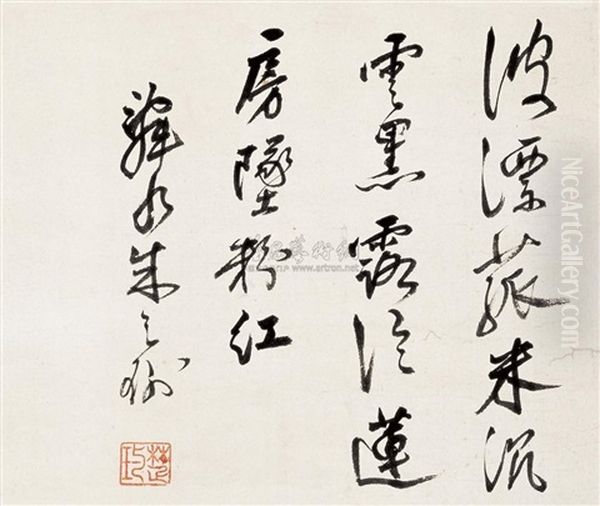 波漂菰米沉
雲黑露冷蓮
房墜粉紅
水朱之瑜
雅昌藝術網
www.artron.net
NiceArtGallery.com